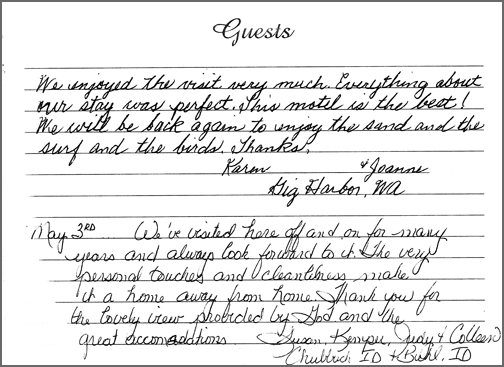 Guests
We enjoyed the visit very much. Everything about
our stay was perfect. This motel is the best!
We will be back again to enjoy the sand and the
surf and the birds. Thanks.
Karen & Joanne
Gig Harbor, WA
May 3RD We've visited here off and on for many
years and always look forward to it. The very
personal touches and cleanliness make
it a home away from home. Thank you for
the lovely view provided by God and the
great accomodations. Susan, Judy & Colleen
ID & Buhl, ID